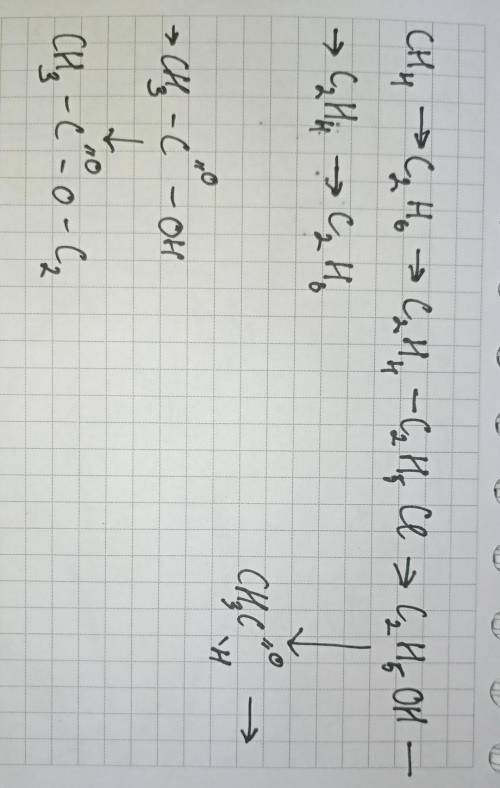 CH₄ → C₂H₆ → C₂H₄ – C₂H₅Cl → C₂H₅OH –
→ C₂H₄ → C₂H₆ ↓
CH₃C =O -H →
→ CH₃ – C =O – OH
↓
CH₃ – C =O – O – C₂